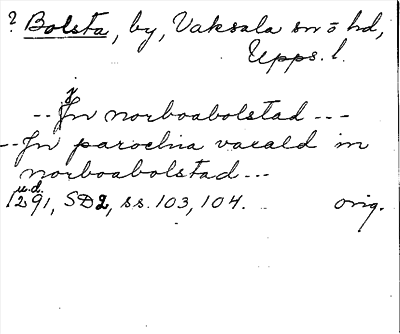 ? Bolsta, by, Vaksala sn o hd,
Upps. l.
-- Jn norboabolstad ---
-- Jn parochia vaxald in
norboabolstad ---
u.d.
1291, SD2, ss. 103, 104. orig.